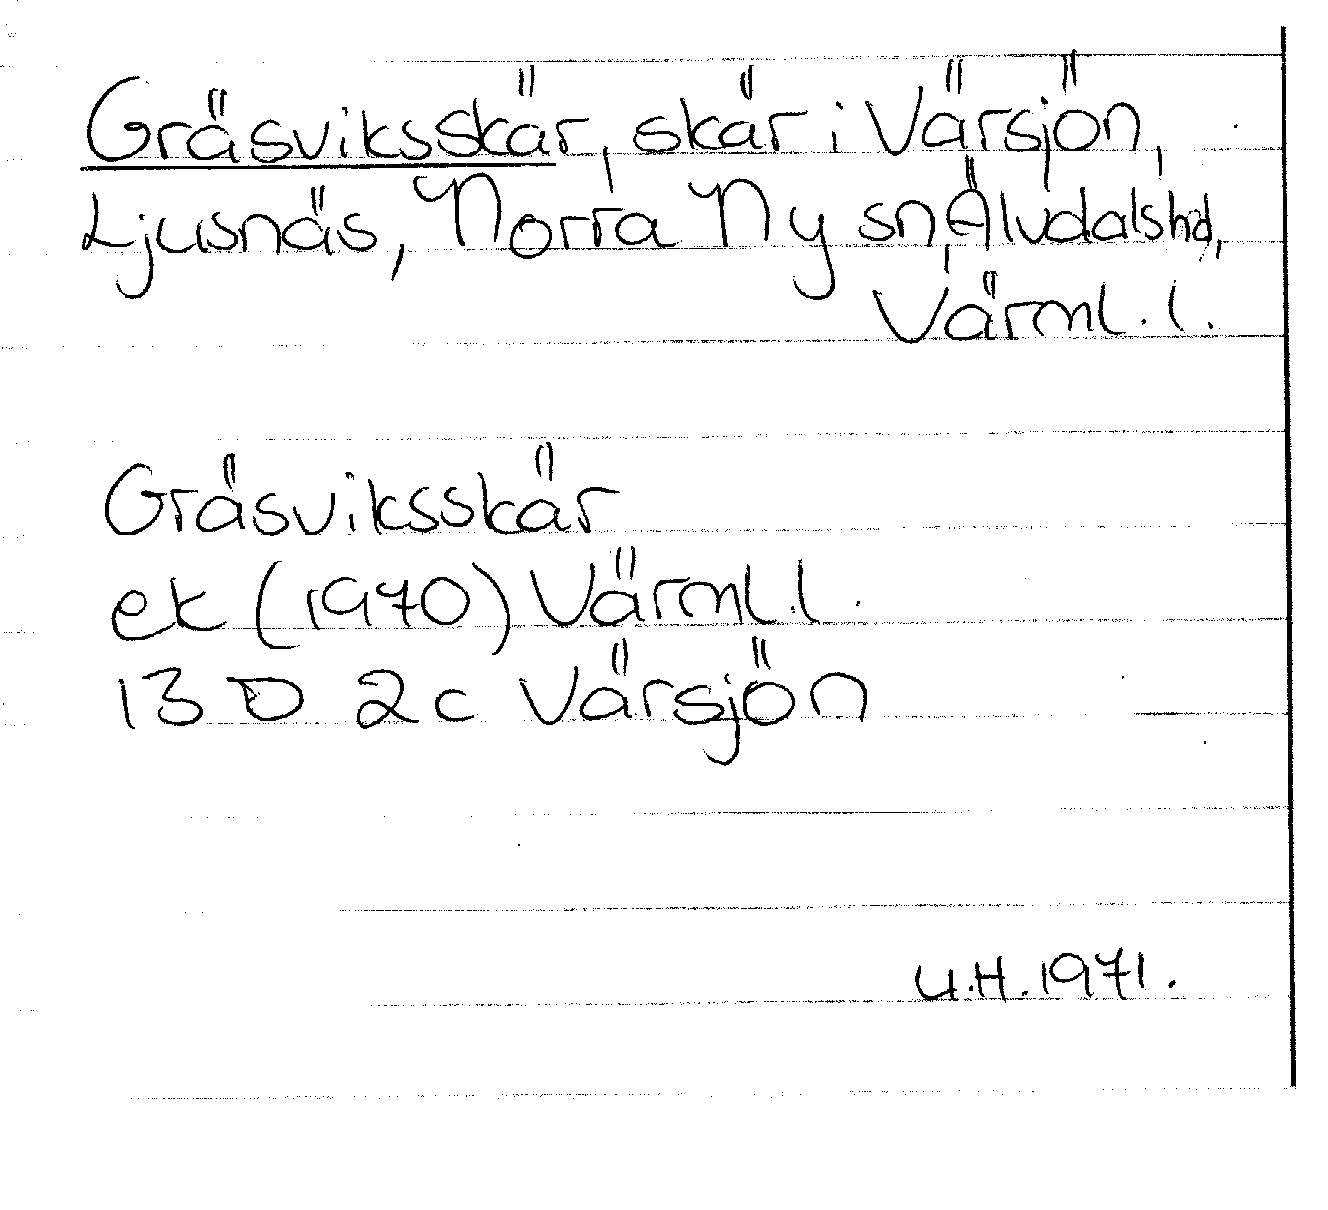 Gräsviksskär, skär i Värsjön,
Ljusnäs, Norra Ny sn, Älvdals hd,
Värml. l.
Gräsviksskär
ek (1970) Värml. l.
13 D 2c Värsjön
U.H. 1971.